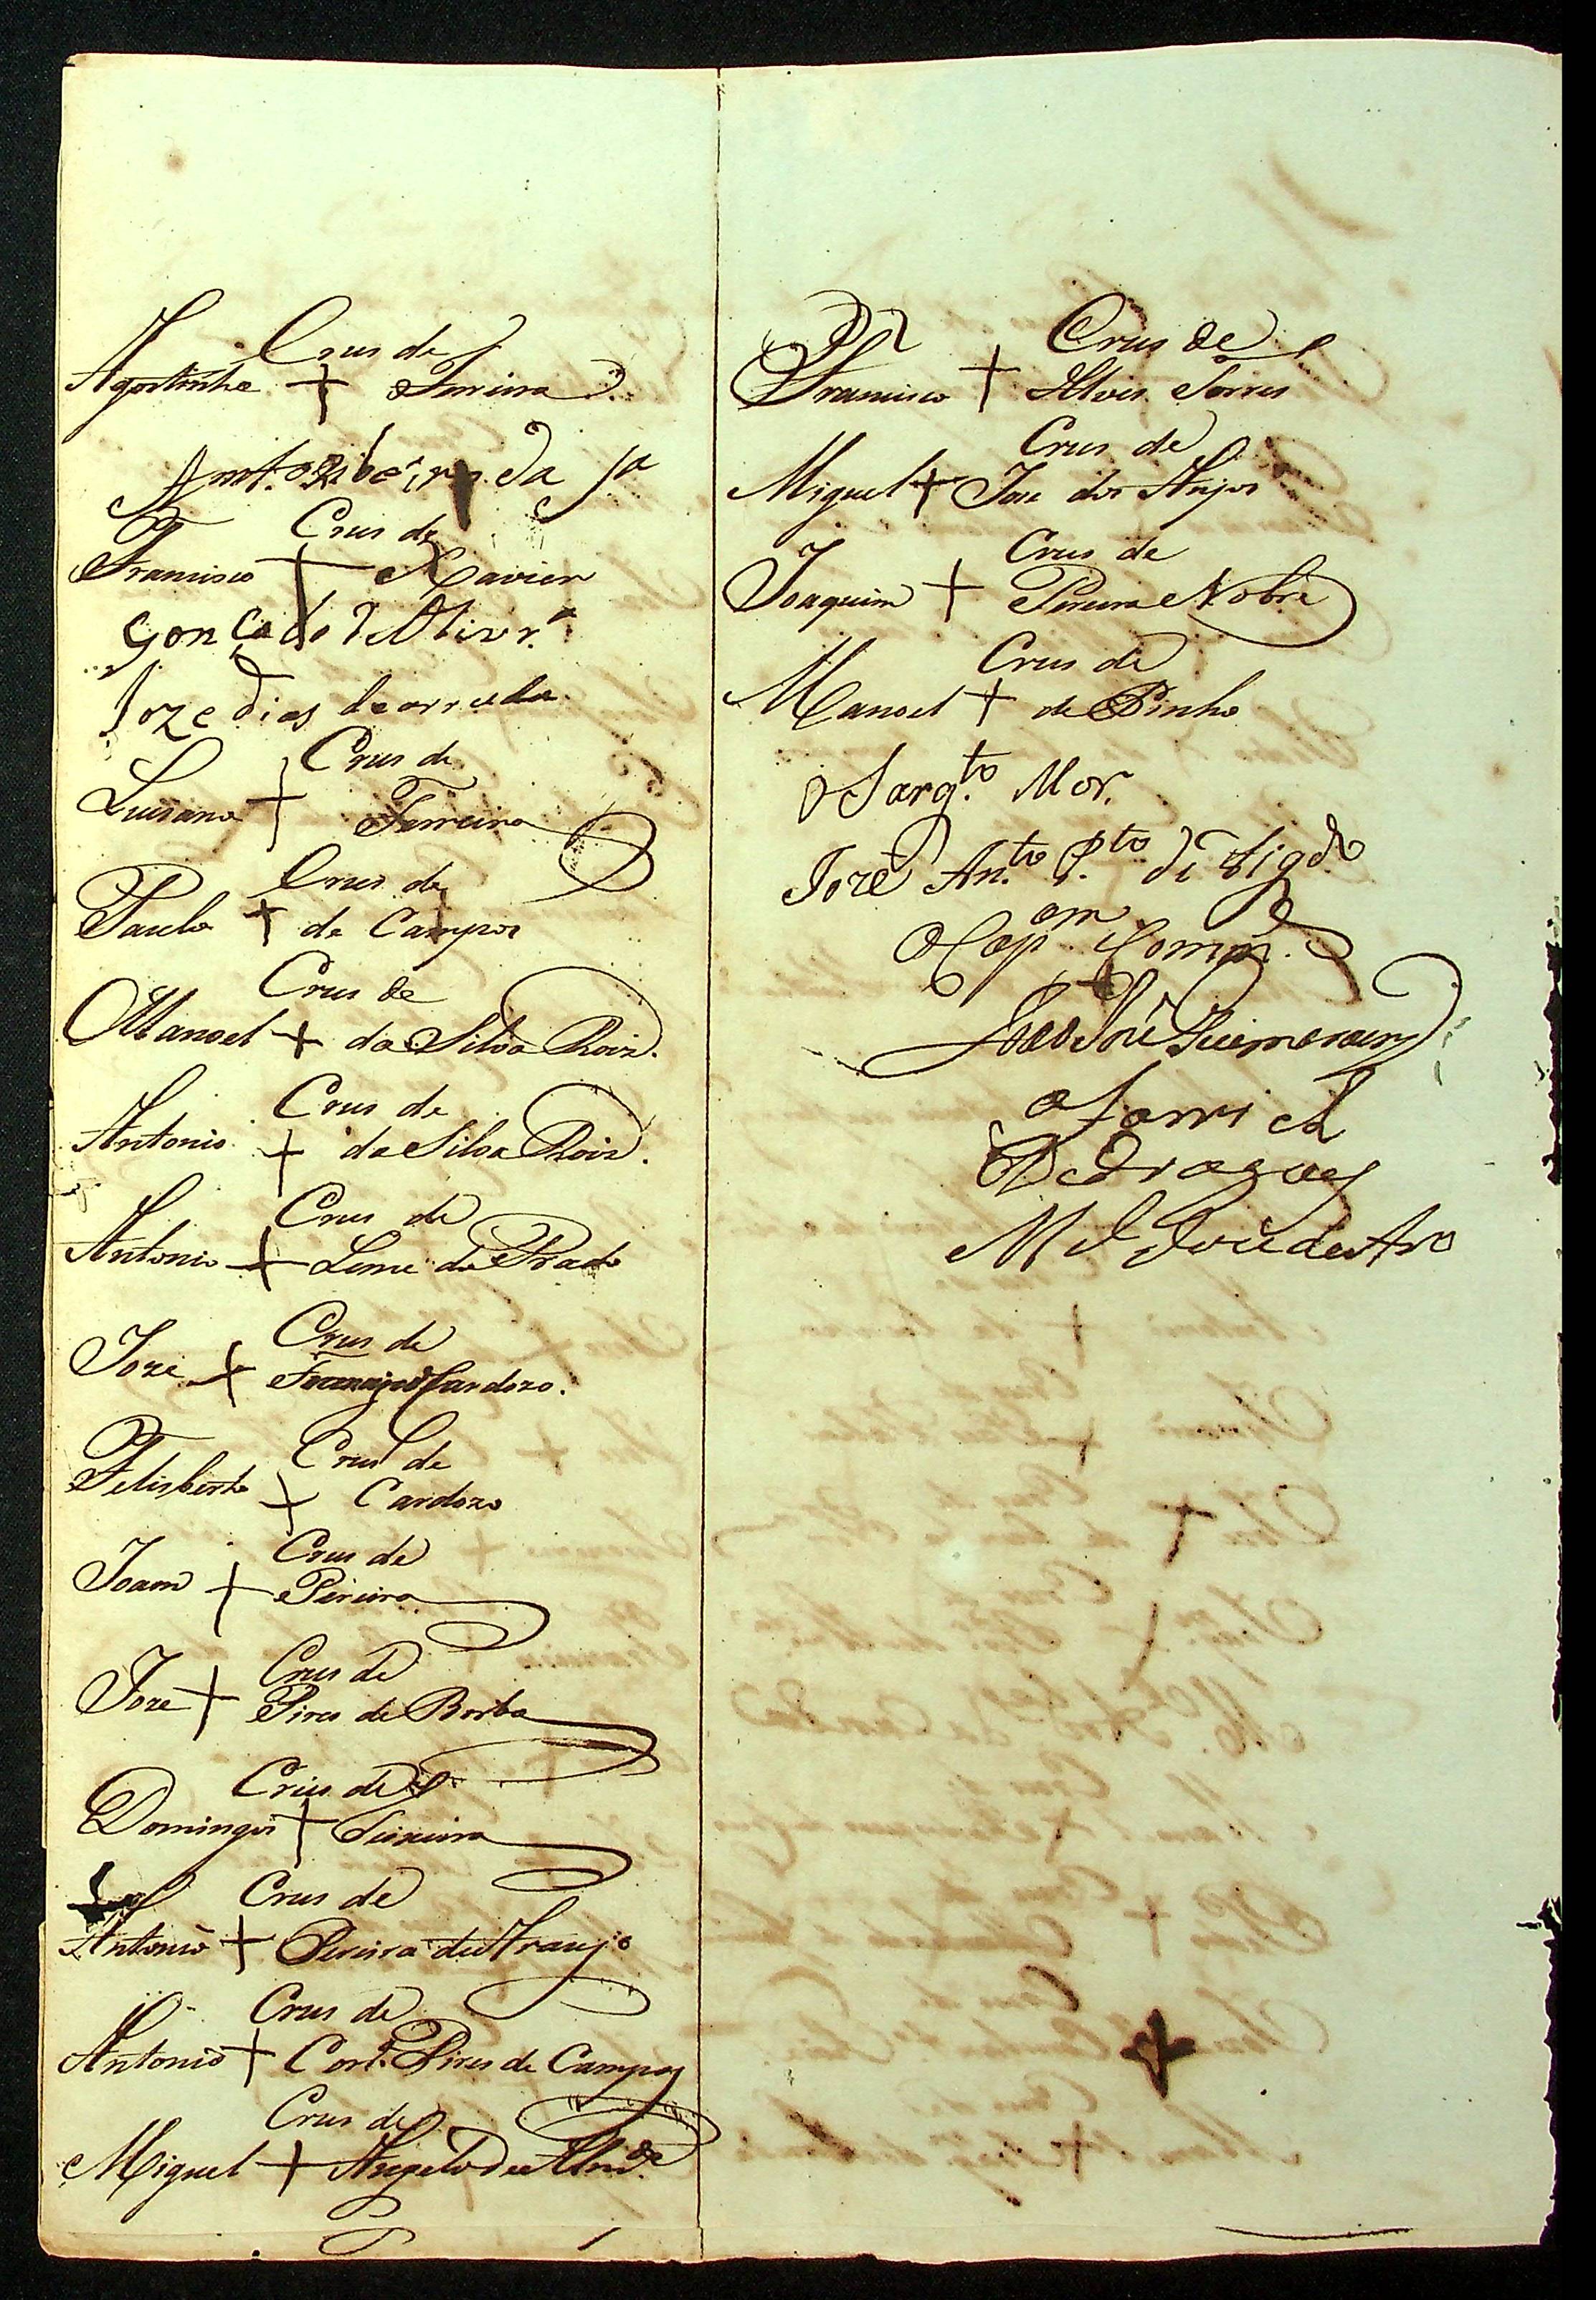 Crus de
Agostinho + Pereira
Ant.º Ribeiro da
Crus de
Francisco + Xavier
Gonçalo d Olivr.ª
Joze Dias de arruda
Crus de
Luciano + Ferreira
Crus de
Paulo + de Campos
Crus de
Manoel + da Silva Roiz.
Crus de
Antonio + da Silva Roiz.
Crus de
Antonio + Leme do Prado
Crus de
Joze + Cardozo.
Crus de
Felisberto + Cardozo
Crus de
Joam + Pereira
Crus de
Joze + Pires de Borba
Crus de
Domingos + Teixeira
Crus de
Antonio + Pereira de Araujo
Crus de
Antonio + Pires de Campos
Crus de
Miguel + Angelo de Alm.da
Crus de
Francisco + Alves Torres
Crus de
Miguel + Joze dos Anjos
Crus de
Joaquim + Pereira Nobre
Crus de
Manoel + de Pinho
O Sarg.to Mor.
Joze An.to P.to de Figd.o
O Cap.am Comm.
João Joze Guimaraens
O
D Dragoes
M José de